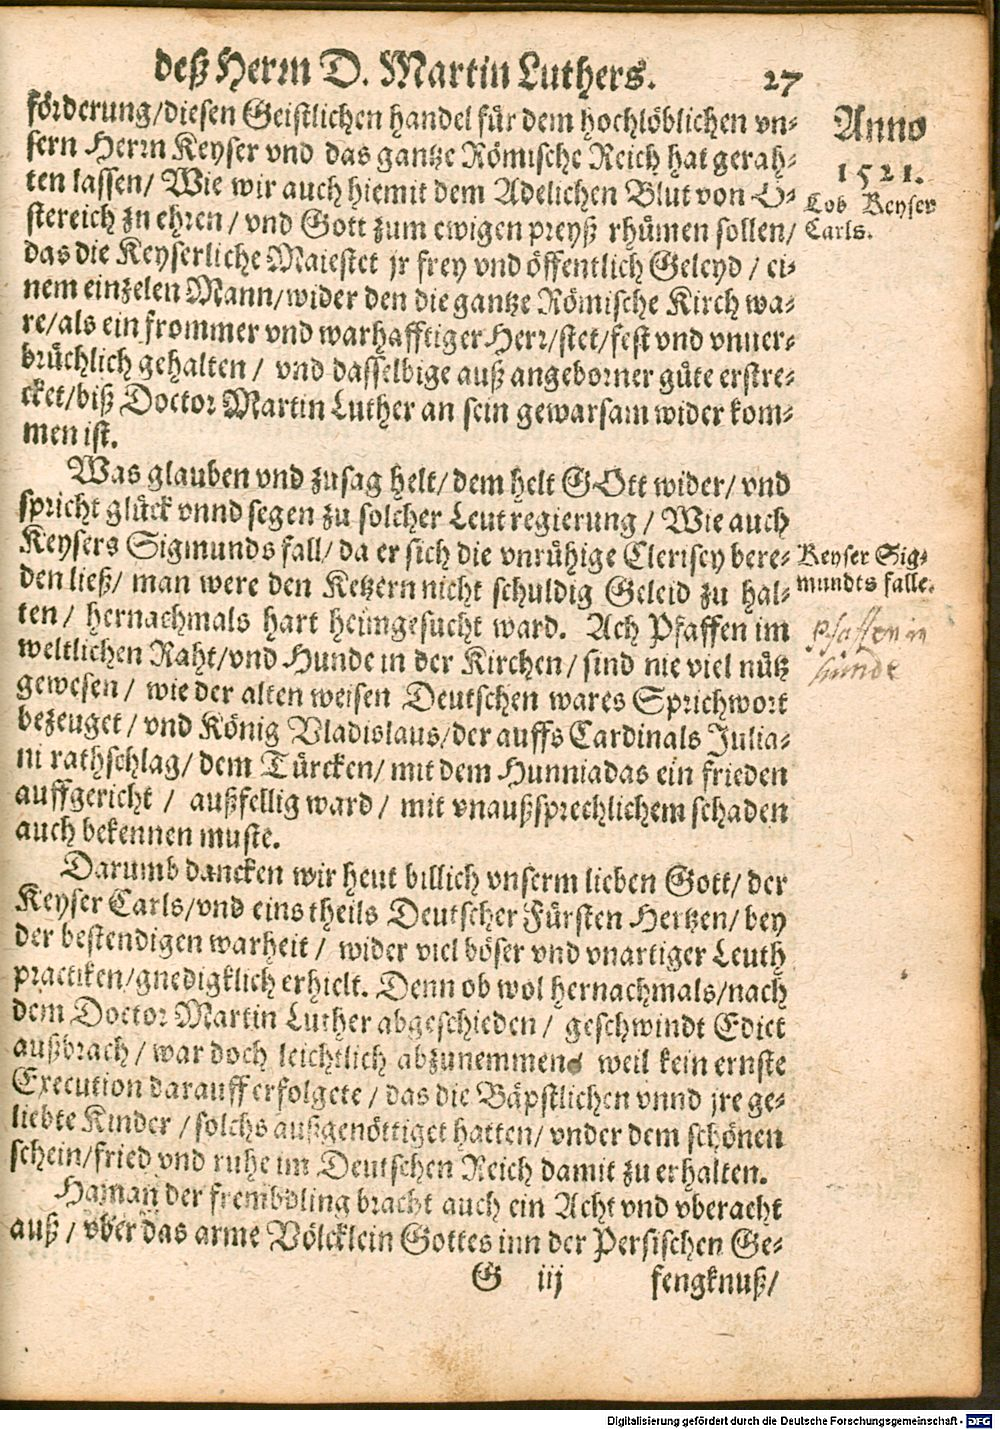 deß Herrn D. Martin Luthers. 27
förderung/diesen Geistlichen handel für dem hochlöblichen vn-
sern Herrn Keyser vnd das gantze Römische Reich hat gerah-
ten lassen/ Wie wir auch hiemit dem Adelichen Blut von O-
stereich zu ehren/ vnd Gott zum ewigen preyß rhümen sollen/
das die Keyserliche Maiestet jr frey vnd öffentlich Geleyd/ ei-
nem einzelen Mann/wider den die gantze Römische Kirch wa-
re/als ein frommer vnd warhafftiger Herr/stet/fest vnd vnuer-
brüchlich gehalten/ vnd dasselbige auß angeborner güte erstre-
cket/biß Doctor Martin Luther an sein gewarsam wider kom-
men ist.
Anno
1521.
Lob Keyser
Carls.
Was glauben vnd zusag helt/ dem helt GOtt wider/ vnd
spricht glück vnnd segen zu solcher Leut regierung/ Wie auch
Keysers Sigmunds fall/ da er sich die vnrühige Clerisey bere-
den ließ/ man were den Ketzern nicht schuldig Geleid zu hal-
ten/ hernachmals hart heimgesucht ward. Ach Pfaffen im
weltlichen Raht/vnd Hunde in der Kirchen/ sind nie viel nütz
gewesen/ wie der alten weisen Deutschen wares Sprichwort
bezeuget/ vnd König Vladislaus/der auffs Cardinals Julia-
ni rathschlag/ dem Türcken/ mit dem Hunniadas ein frieden
auffgericht/ außfellig ward/ mit vnaußsprechlichem schaden
auch bekennen muste.
Keyser Sig-
mundts falle.
Pfaffen in
hunde
Darumb dancken wir heut billich vnserm lieben Gott/ der
Keyser Carls/vnd eins theils Deutscher Fürsten Hertzen/ bey
der bestendigen warheit/ wider viel böser vnd vnartiger Leuth
practiken/gnedigklich erhielt. Denn ob wol hernachmals/nach
dem Doctor Martin Luther abgeschieden/ geschwindt Edict
außbrach/ war doch leichtlich abzunemmen weil kein ernste
Execution darauff erfolgete/ das die Bäpstlichen vnnd jre ge-
liebte Kinder/ solchs außgenöttiget hatten/ vnder dem schönen
schein/fried vnd ruhe im Deutschen Reich damit zu erhalten.
Haman der frembdling bracht auch ein Acht vnd vberacht
auß/ vber das arme Völcklein Gottes inn der Persischen Ge-
G iij fengknuß/
Digitalisierung gefördert durch die Deutsche Forschungsgemeinschaft - DFG